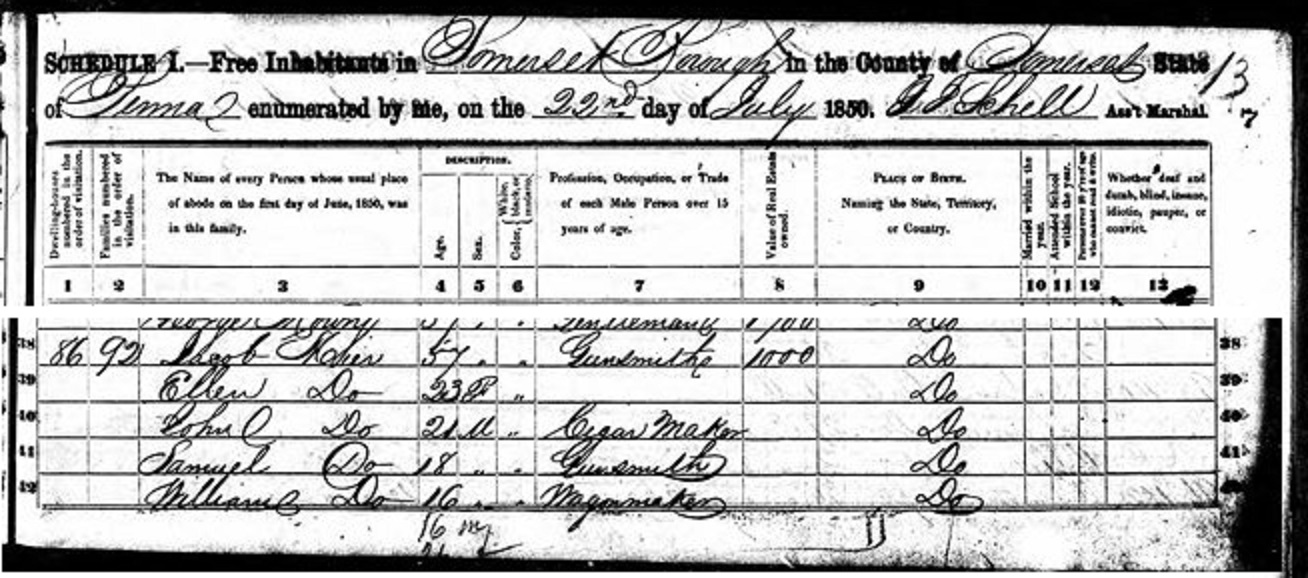 SCHEDULE I.—Free Inhabitants in Somerset Borough in the County of Somerset State 13
of Penna enumerated by me, on the 22nd day of July 1850. Schell Ass't Marshal. 7
Dwelling-houses numbered in the order of visitation.
Families numbered in the order of visitation.
The Name of every Person whose usual place of abode on the first day of June, 1850, was in this family.
DESCRIPTION.
Age.
Sex.
Color, White, black, or mulatto.
Profession, Occupation, or Trade of each Male Person over 15 years of age.
Value of Real Estate owned.
PLACE OF BIRTH. Naming the State, Territory, or Country.
Married within the year.
Attended School within the year.
Persons over 20 y'rs of age who cannot read & write.
Whether deaf and dumb, blind, insane, idiotic, pauper, or convict.
1 2 3 4 5 6 7 8 9 10 11 12 13
George Mowry Gentleman Do
38 86 92 Jacob 57 " " Gunsmith 1000 Do 38
39 Ellen Do 23 F " Do 39
40 John C Do 21 M " Cigar Maker Do 40
41 Samuel Do 18 " " Gunsmith Do 41
42 William C Do 16 " " Wagonmaker Do
16 m